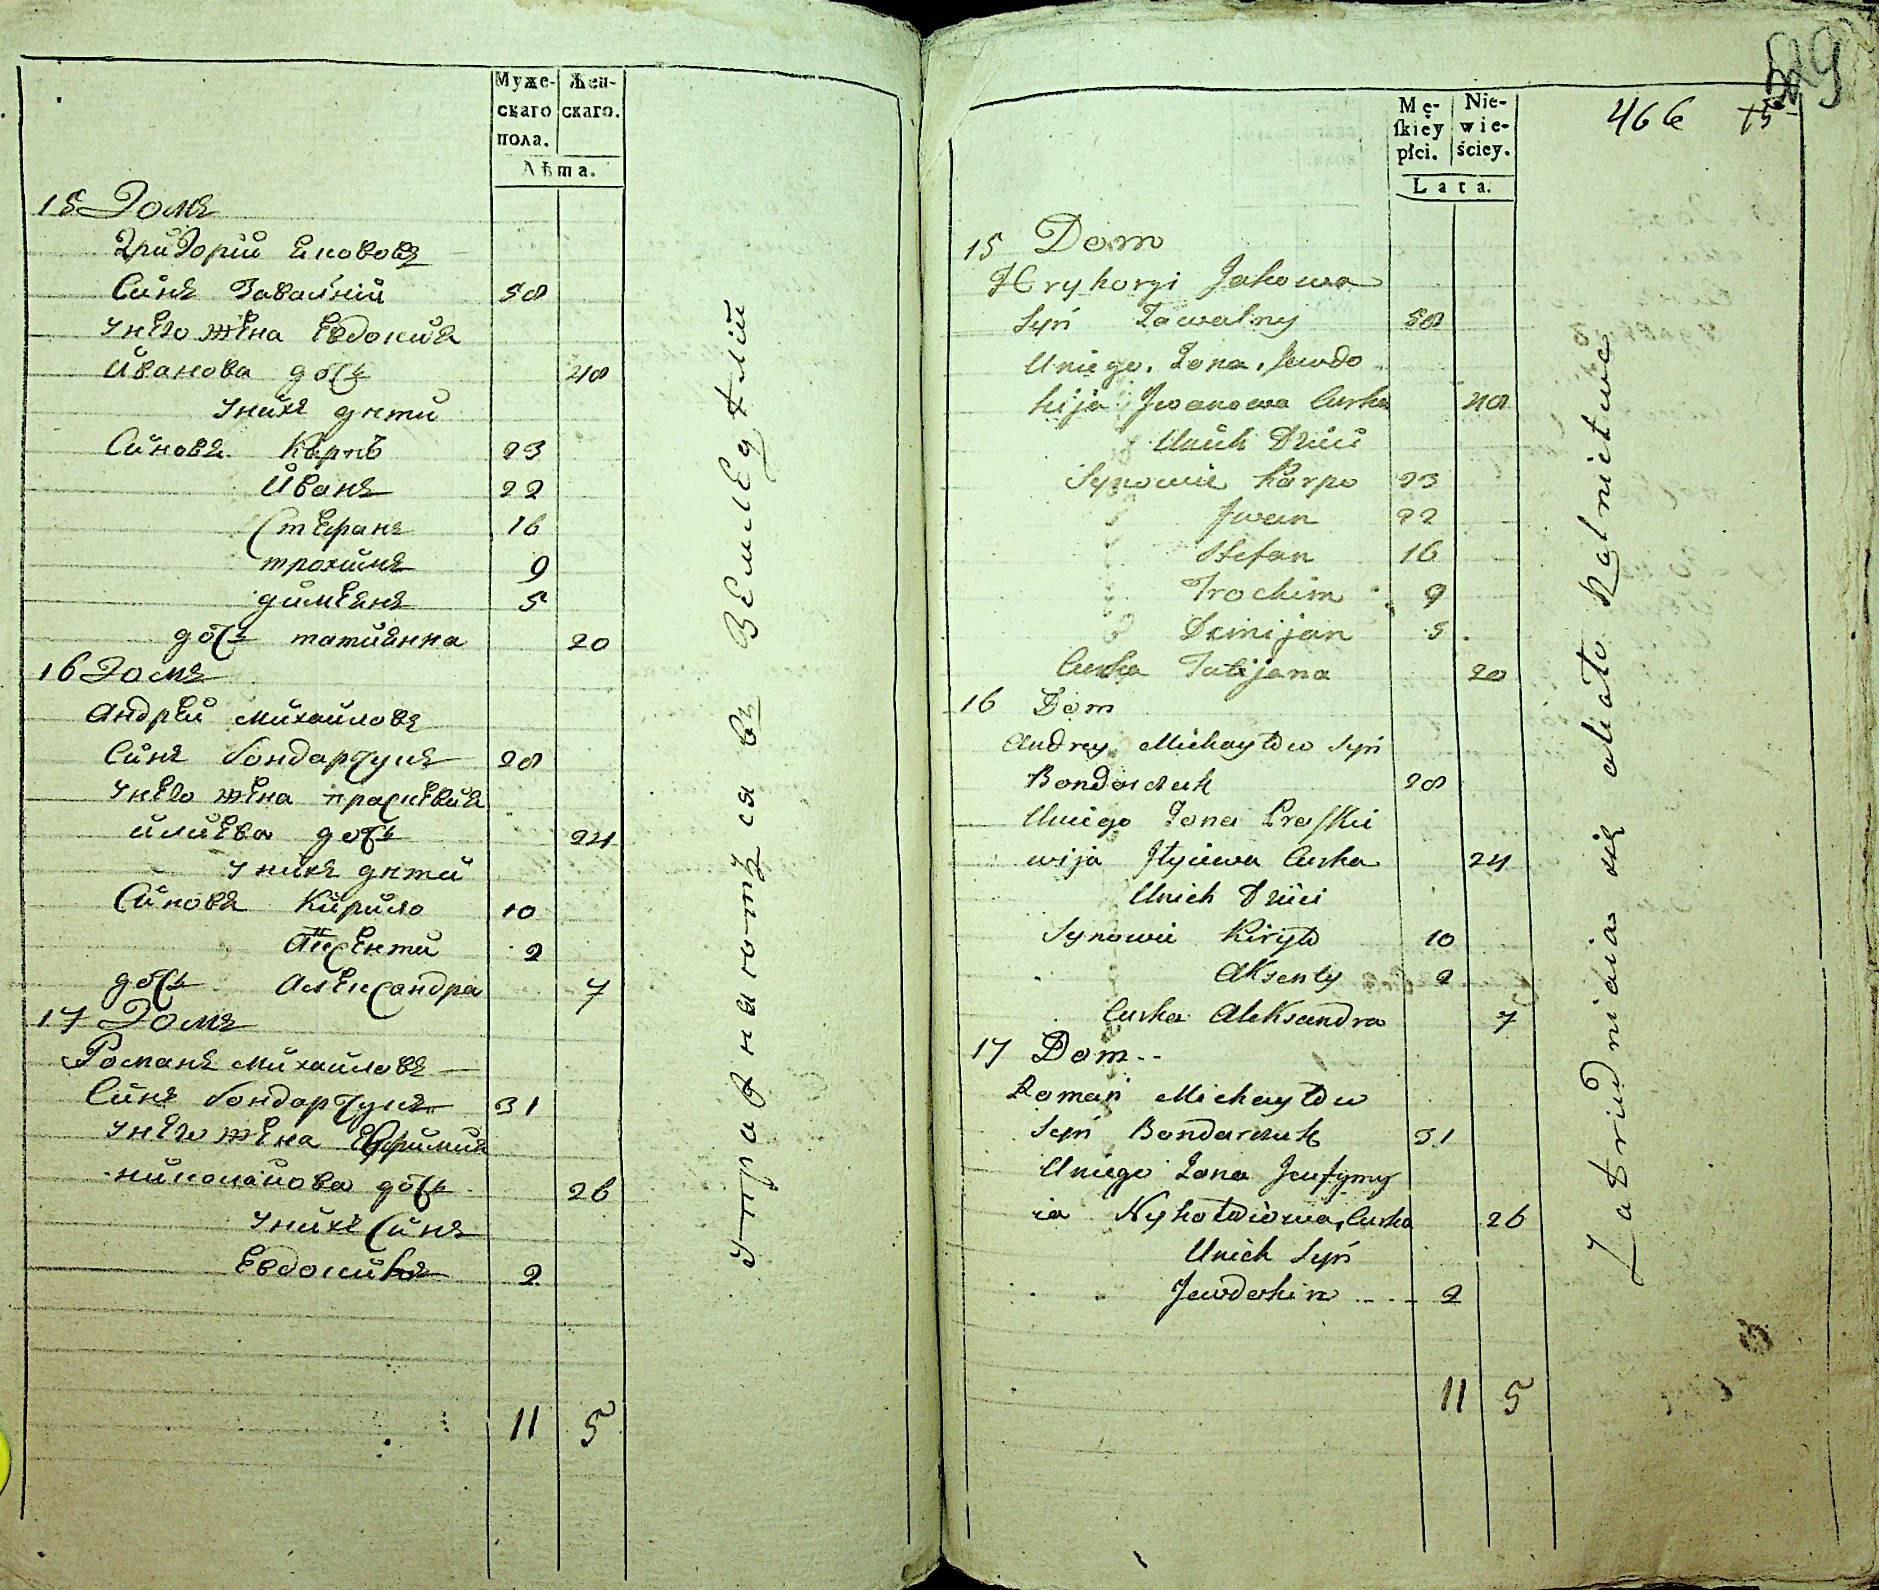 Муже-
скаго
пола.
Жен-
скаго.
Лѣта.
15 Домъ
Григорій Якововъ
Синъ Завалній 58
у него жена Евдокия
Иванова дочь 48
у нихъ дѣти
Синовя Карпъ 23
Иванъ 22
Стефанъ 16
трохимъ 9
димянъ 5
дочь татиянна 20
16 Домъ
Андрей Михайловъ
Синъ бондарчукъ 28
у него жена праскевия
илиева дочь 24
у нихъ дѣти
Синовя Кирило 10
Аксенти 2
дочь Александра 7
17 Домъ
Романъ Михайловъ
Синъ бондарчукъ 31
у него жена Евфимия
николайова дочь 26
у нихъ Синъ
Евдоким 2
11 5
упражняютъся въ Земледѣлий
Mę-
skiéy
płci.
Nie-
wie-
ściey.
Lata.
466
15
29
15 Dom
Hryhorzi Jakowa
Syń Zawalny 58
Uniego Zona Jewdo
kija Jwanowa Curka 48
Unich Dzieci
Synowie Karpo 23
Jwan 22
Stefan 16
Trochim 9
Demijan 5
Curka Tatijana 20
16 Dom
Andrey Michayłow Syń
Bondarczuk 28
Uniego Zona Praskie
wija Jlyiewa Curka 24
Unich Dzieci
Synowie Kiryło 10
Aksenty 2
Curka Aleksandra 7
17 Dom
Roman Michayłow
Syń Bondarczuk 31
Uniego Zona Jeufymy
ia Nykołaiowa Curka 26
Unich Syń
Jewdokim 2
11 5
Zatrudniaia się około Rolnictwa